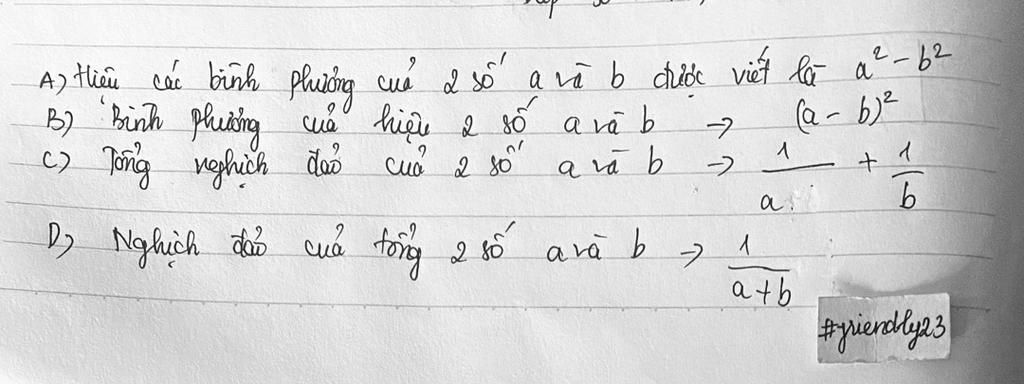 A) Hiệu các bình phương của 2 số a và b được viết là a² - b²
B) Bình phương của hiệu 2 số a và b → (a - b)²
C) Tổng nghịch đảo của 2 số a và b → 1/a + 1/b
D) Nghịch đảo của tổng 2 số a và b → 1/(a+b)
#friendly23